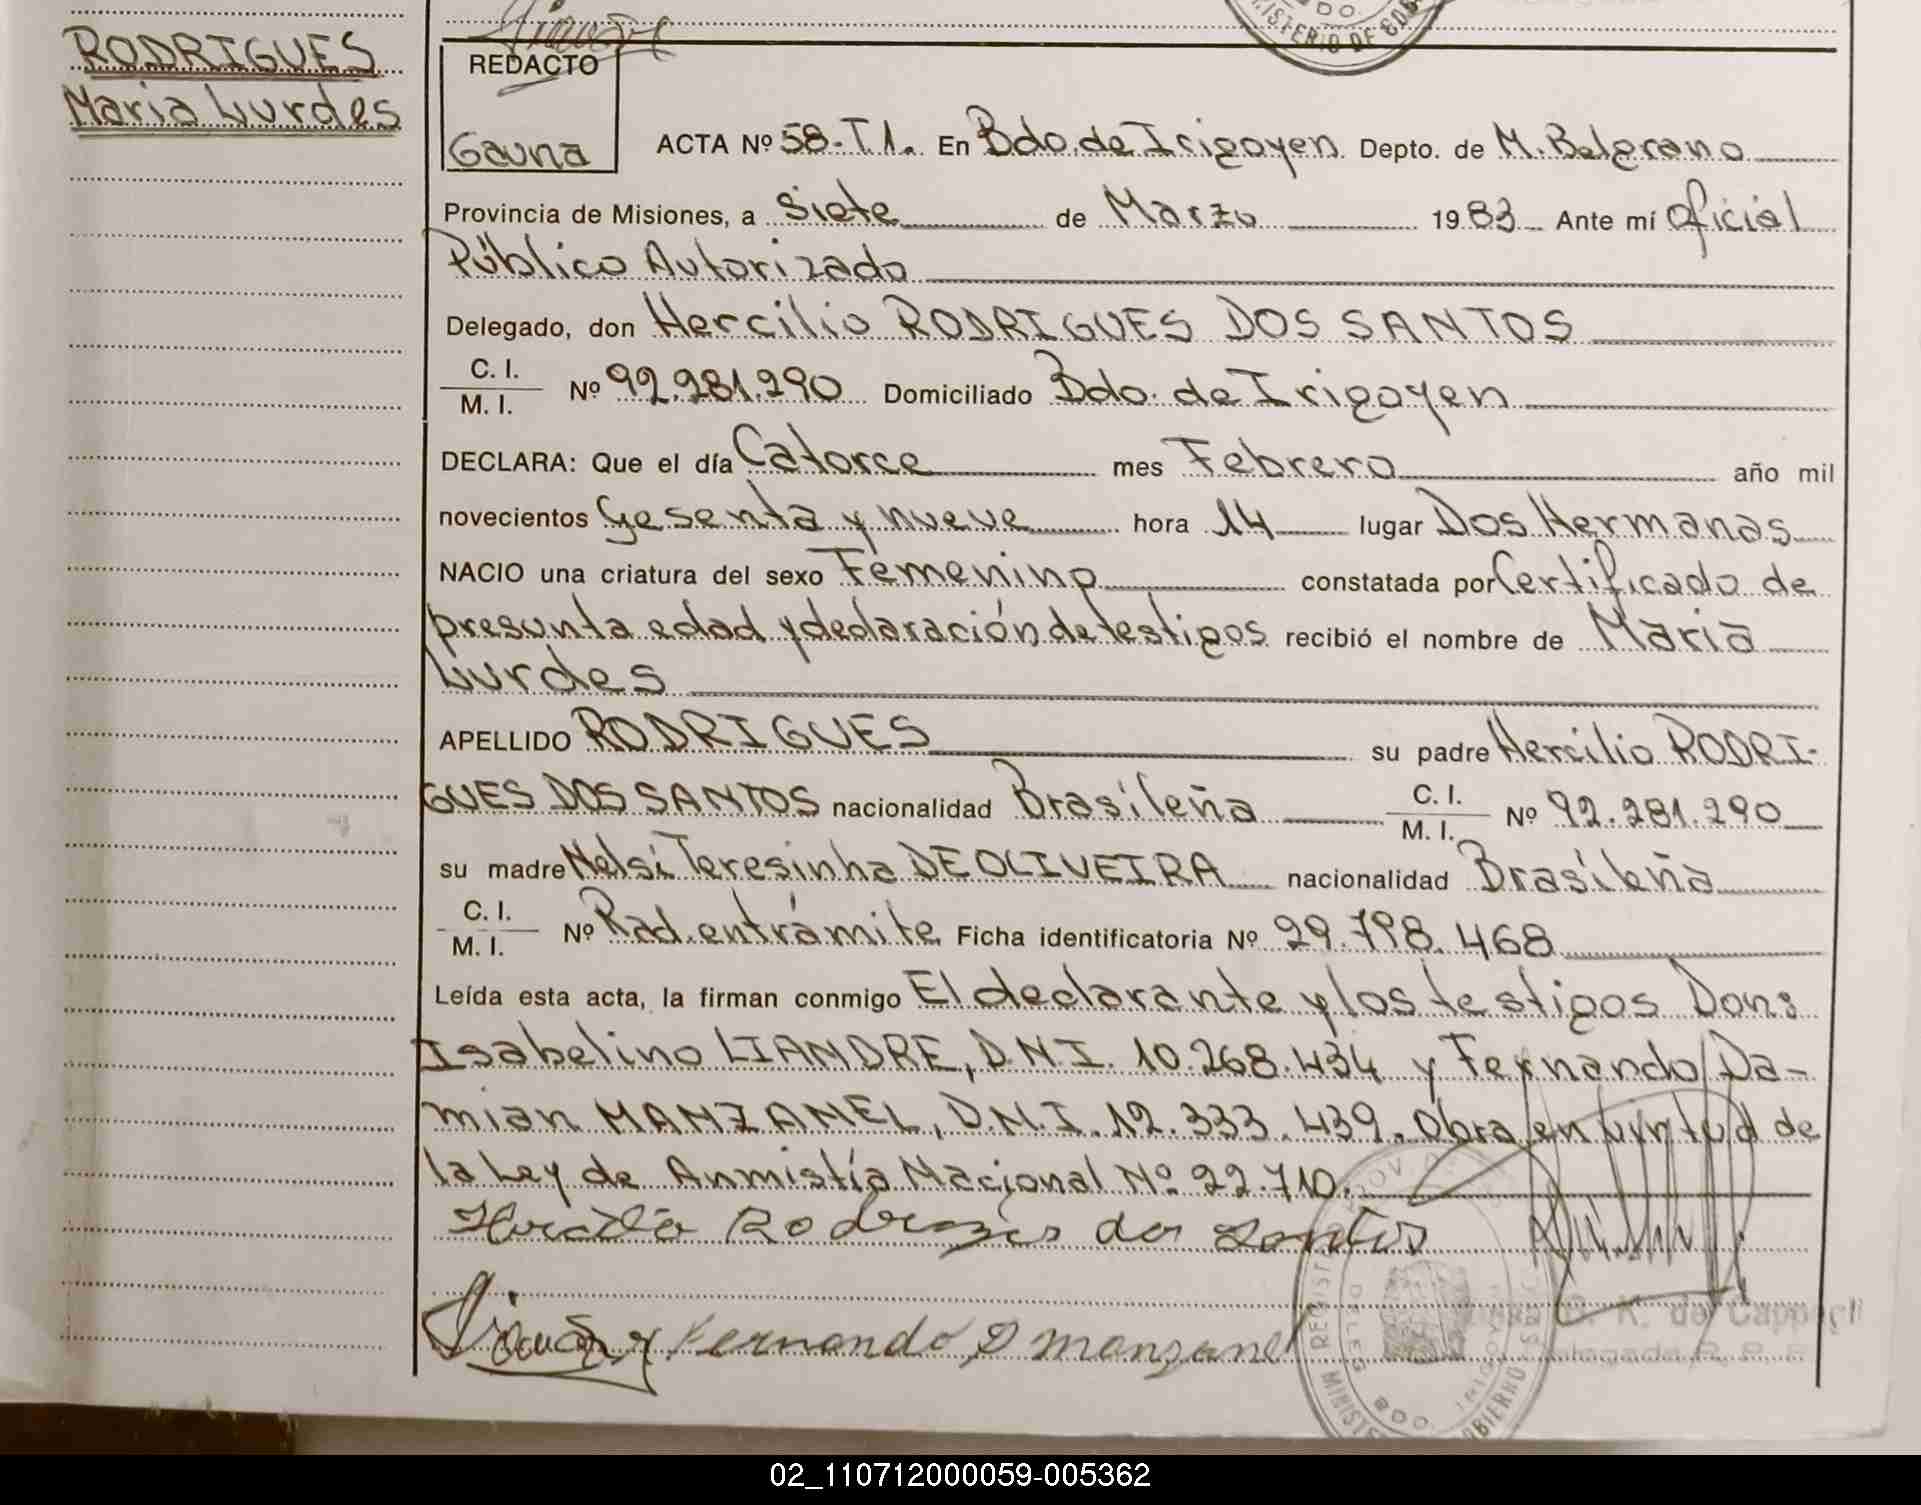 RODRIGUES
Maria Lurdes
MINISTERIO DE GOB
REDACTO
Gauna
ACTA Nº 58-T.1. En Bdo. de Irigoyen Depto. de M. Belgrano
Provincia de Misiones, a Siete de Marzo 1983 Ante mí Oficial
Público Autorizado
Delegado, don Hercilio RODRIGUES DOS SANTOS
C. I.
M. I. Nº 92.281.290 Domiciliado Bdo. de Irigoyen
DECLARA: Que el día Catorce mes Febrero año mil
novecientos Sesenta y nueve hora 14 lugar Dos Hermanas
NACIO una criatura del sexo Femenino constatada por Certificado de
presunta edad y declaración de testigos recibió el nombre de Maria
Lurdes
APELLIDO RODRIGUES su padre Hercilio RODRI-
GUES DOS SANTOS nacionalidad Brasíleña C. I.
M. I. Nº 92.281.290
su madre Nelsi Teresinha DE OLIVEIRA nacionalidad Brasíleña
C. I.
M. I. Nº Rad. en trámite Ficha identificatoria Nº 29.798.468
Leída esta acta, la firman conmigo El declarante y los testigos Don:
Isabelino LIANDRE, D.N.I. 10.268.434 y Fernando Da-
mian MANZANEL, D.N.I. 12.333.439. Obra en virtud de
la Ley de Anmistía Nacional Nº 22.710.
Hercilio Rodrigues dos Santos
Fernando D Manzanel
K. de Cappelli
Delegada R. P.
02_110712000059-005362